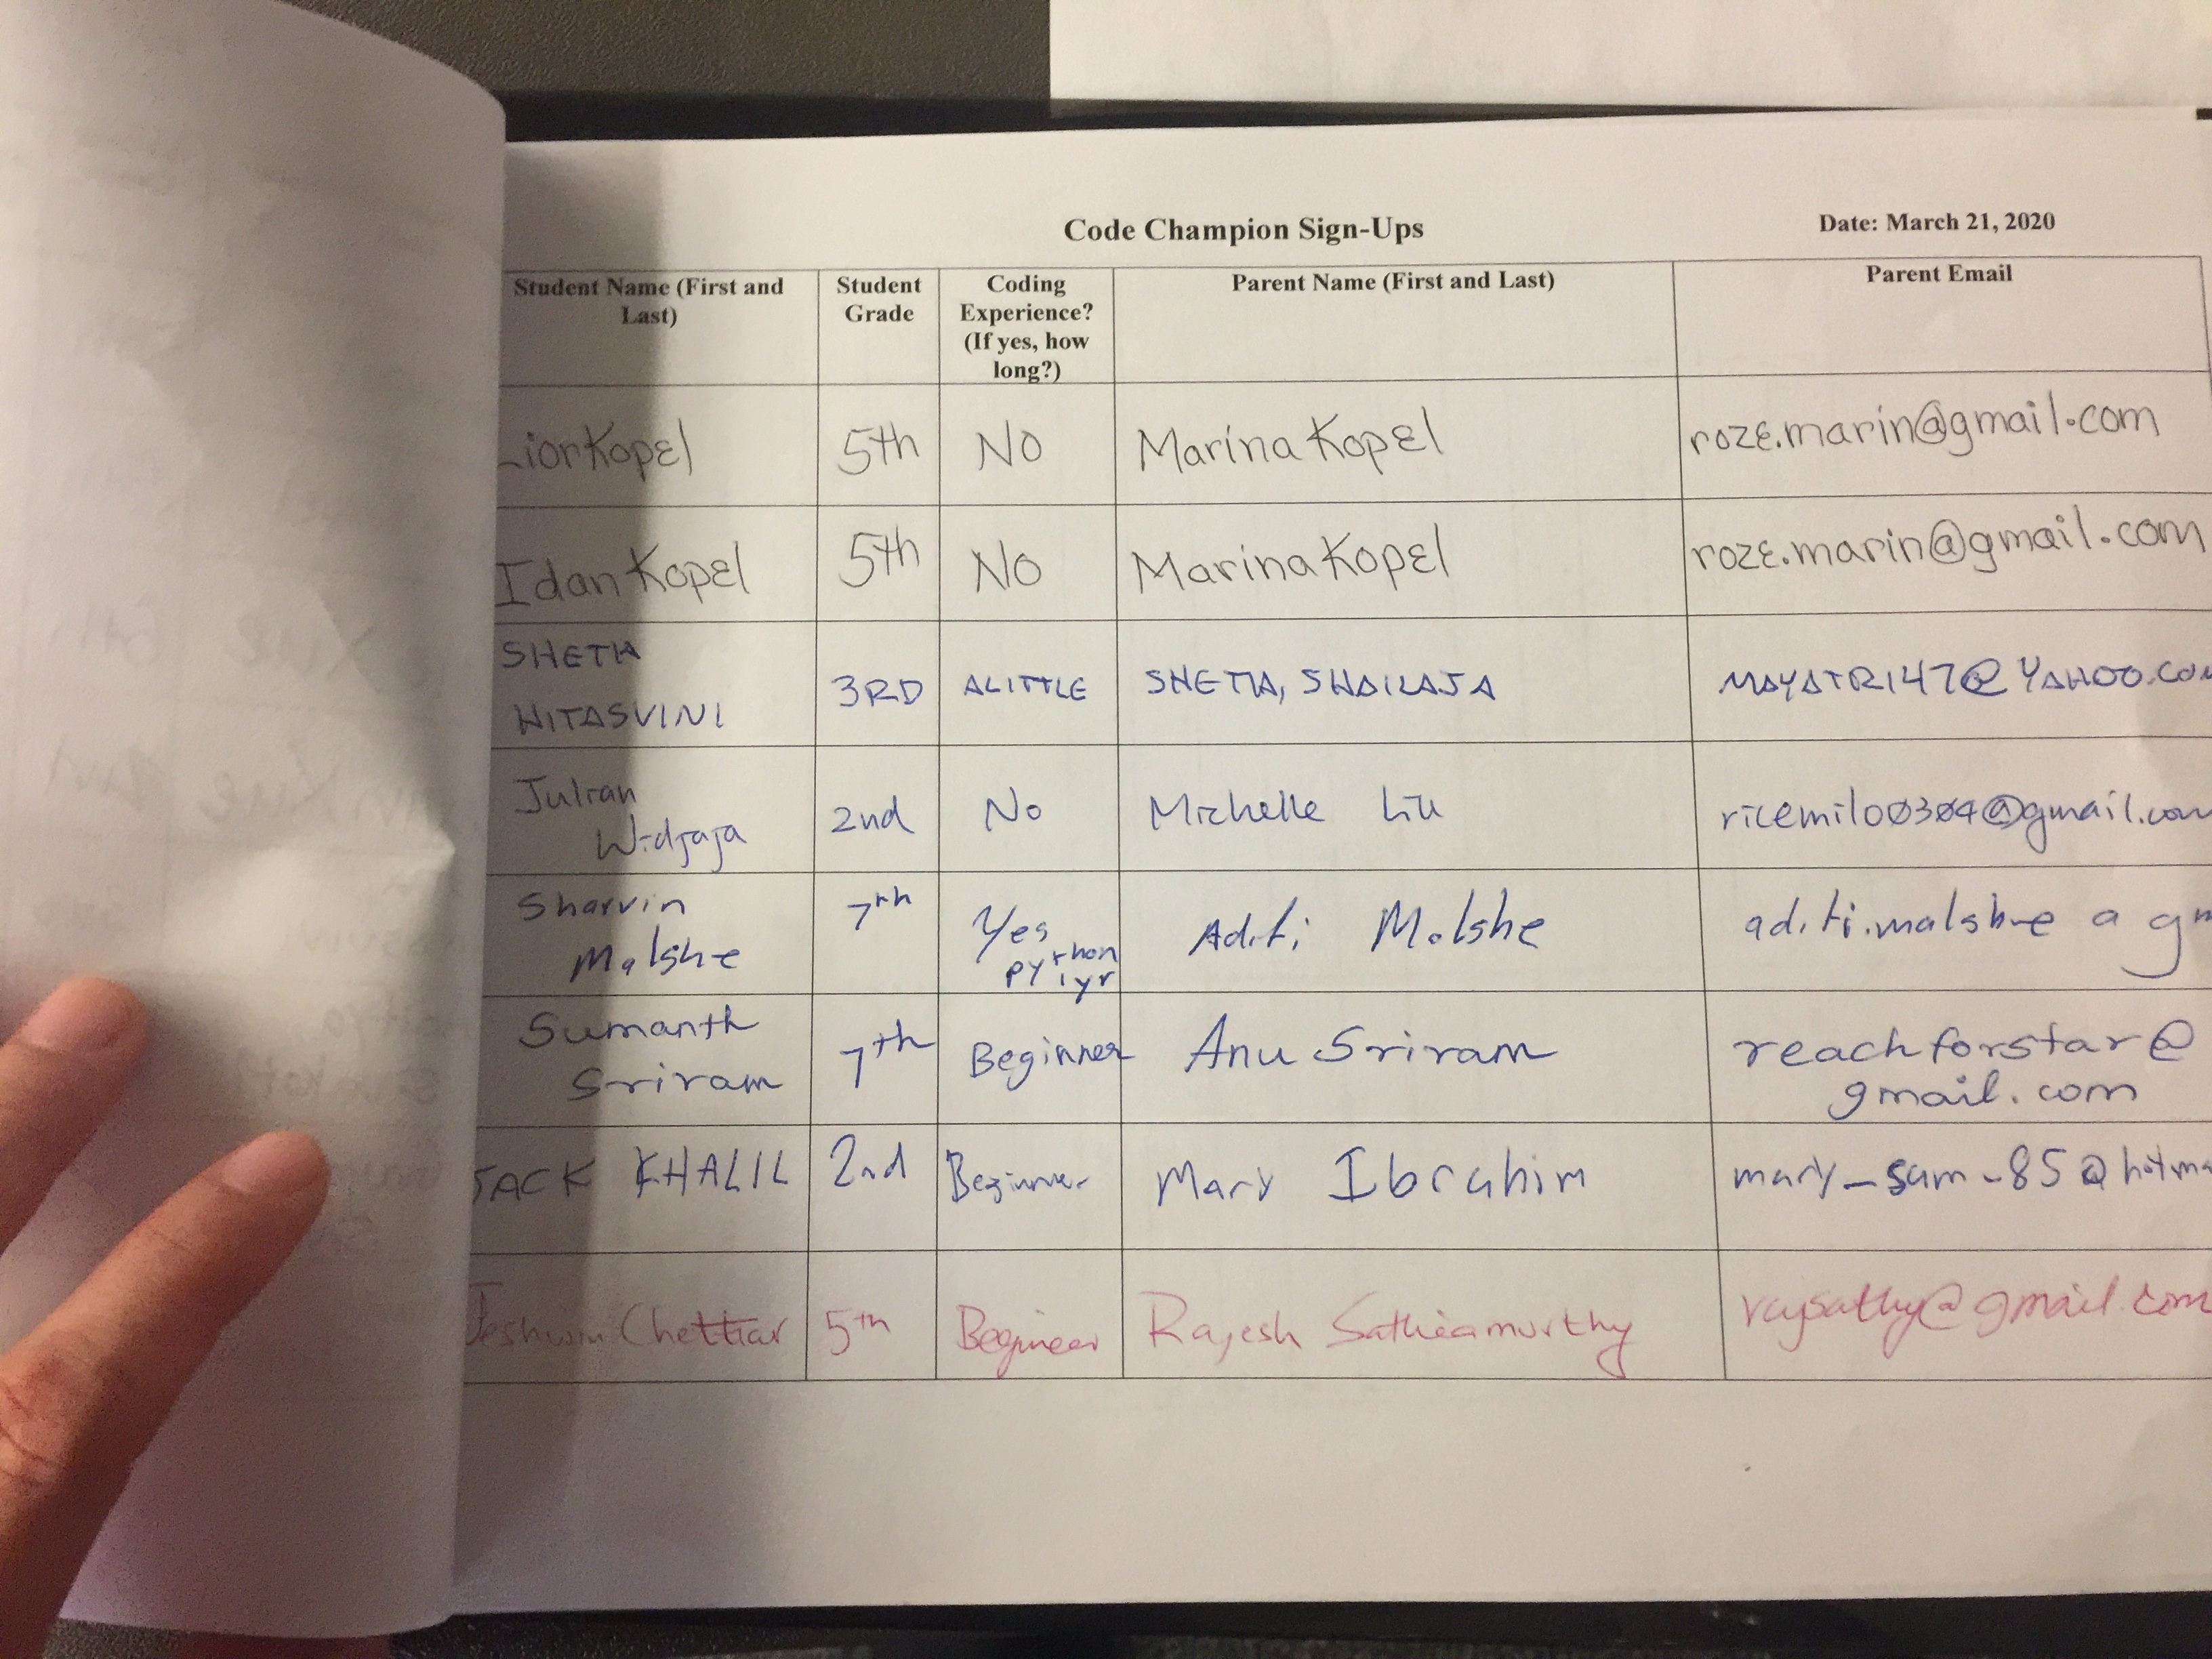 Code Champion Sign-Ups
Date: March 21, 2020
Student Name (First and Last)
Student Grade
Coding Experience? (If yes, how long?)
Parent Name (First and Last)
Parent Email
ior Kopel
5th
No
Marina Kopel
roze.marin@gmail.com
Idan Kopel
5th
No
Marina Kopel
roze.marin@gmail.com
SHETH
HITASVINI
3RD
ALITTLE
SHETH, SHAILAJA
@YAHOO.CO
Julian
Widjaja
2nd
No
Michelle Lu
@gmail.com
Sharvin
Malshe
7th
Yes
python
1 yr
Aditi Malshe
aditi.malshe a g
Sumanth
Sriram
7th
Beginner
Anu Sriram
reachforstar@
gmail.com
JACK KHALIL
2nd
Beginner
Mary Ibrahim
mary-sam-85@
Chettiar
5th
Beginner
Rajesh
@gmail.com